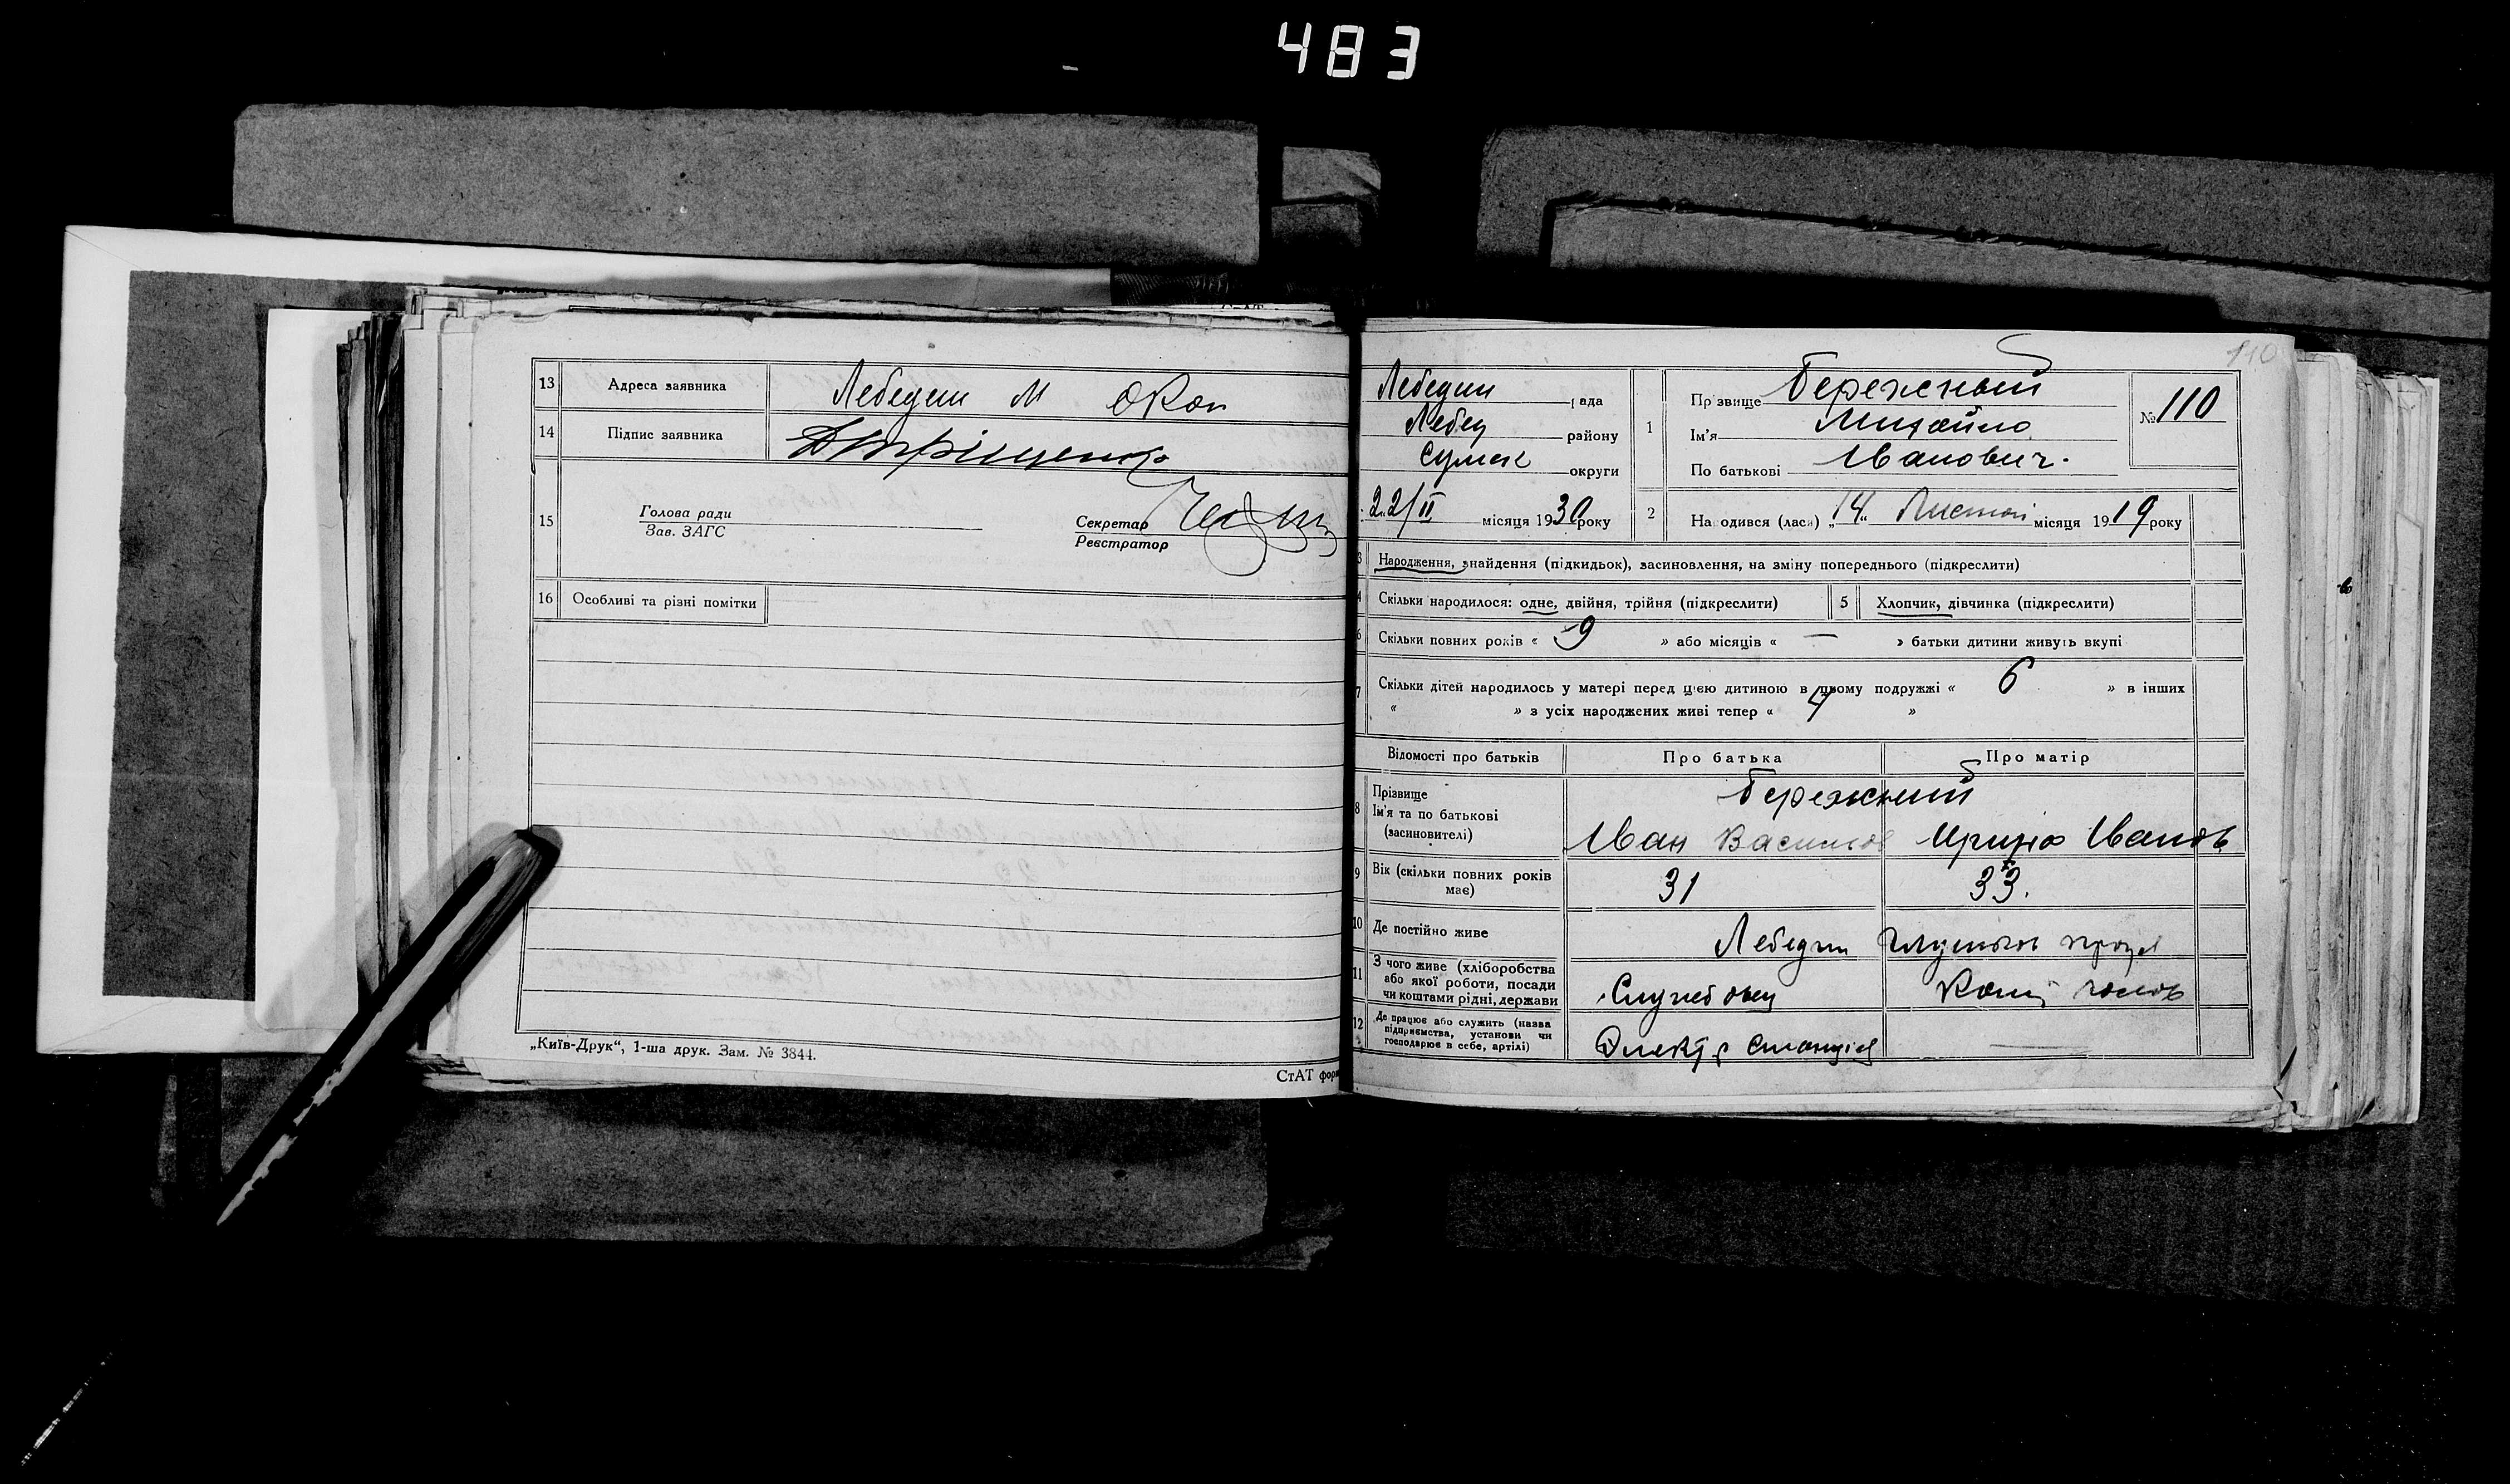 483
13 Адреса заявника Лебедин М
14 Підпис заявника
15 Голова ради
Зав. ЗАГС
Секретар
Реєстратор
16 Особливі та різні помітки
„Київ-Друк“, 1-ша друк. Зам. № 3844.
СтАТ
110
Лебедин рада
Лебед району
Сумск округи
22/II місяця 1930 року
1 Прізвище Бережный
Ім'я Михайло
По батькові Іванович.
№ 110
2 Народився (лась) „14“ Листоп місяця 1919 року
3 Народження, знайдення (підкидьок), засиновлення, на зміну попереднього (підкреслити)
4 Скільки народилося: одне, двійня, трійня (підкреслити) 5 Хлопчик, дівчинка (підкреслити)
6 Скільки повних років « 9 » або місяців « — » батьки дитини живуть вкупі
7 Скільки дітей народилось у матері перед цією дитиною в цьому подружжі « 6 » в інших
« » з усіх народжених живі тепер « 4 »
Відомості про батьків Про батька Про матір
8 Прізвище
Ім'я та по батькові
(засиновителі)
Бережний
Іван Васильов Ирина Іванов
9 Вік (скільки повних років
має)
31 33.
10 Де постійно живе Лебедин
11 З чого живе (хліборобства
або якої роботи, посади
чи коштами рідні, держави
Службовец Кошт чолов
12 Де працює або служить (назва
підприємства, установи чи
господарює в себе, артілі)
Электр станция